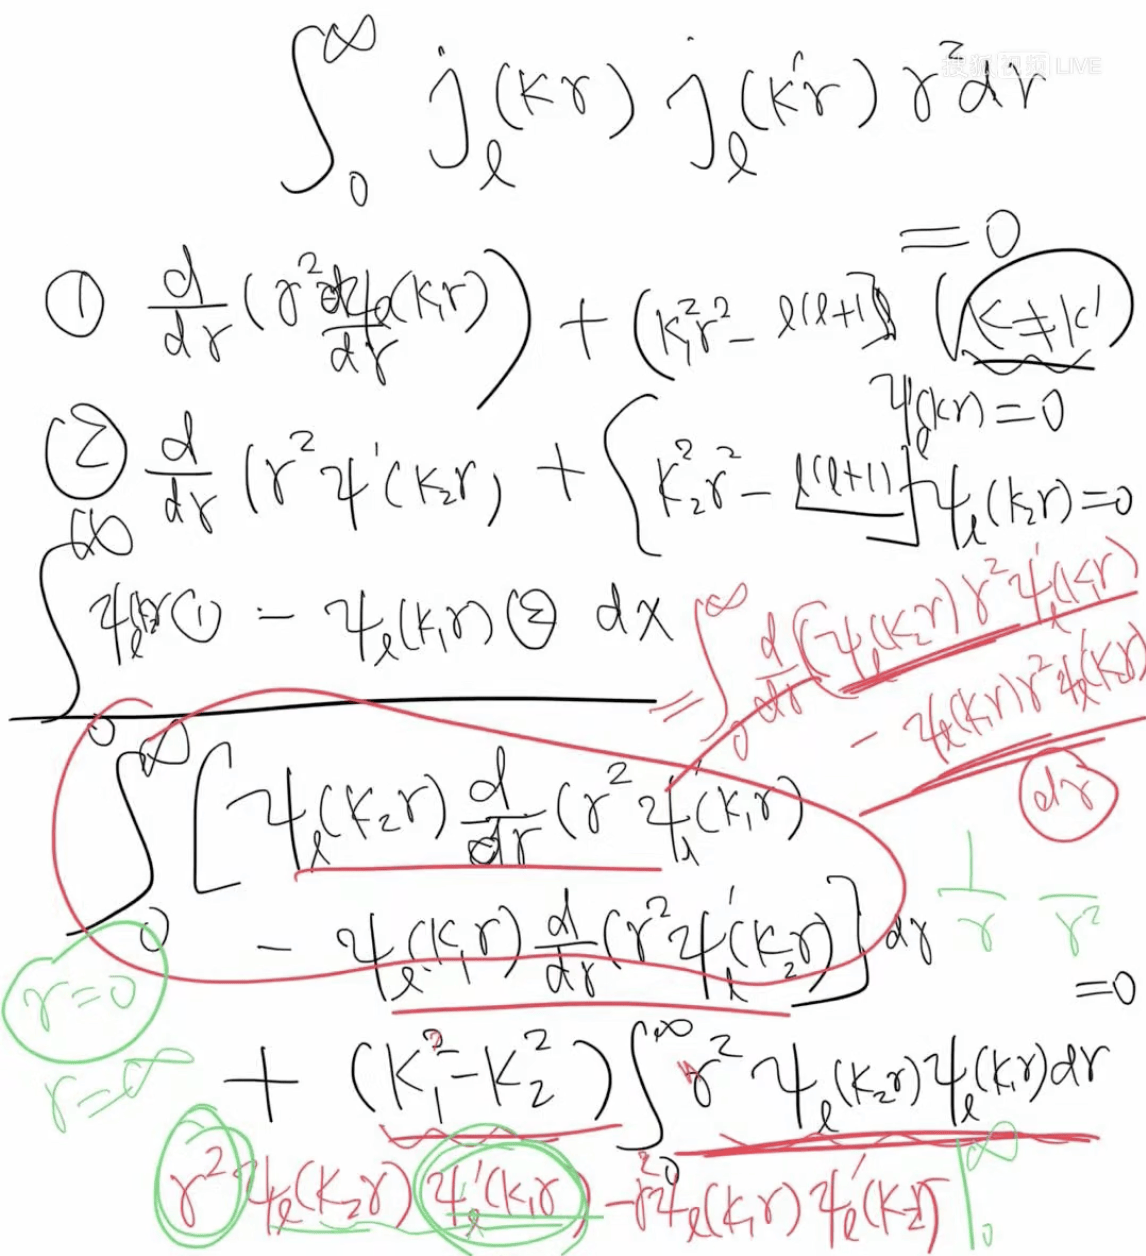 搜狐视频 LIVE
∫₀^∞ j_l(kr) j_l(k'r) r² dr
= 0
① d/dr (r² dψ_l(k₁r)/dr) + (k₁²r² - l(l+1)] (k≠k')
ψ_l(kr) = 0
② d/dr (r² ψ'(k₂r) + [k₂²r² - l(l+1)] ψ_l(k₂r) = 0
∫₀^∞ ψ_l(k₂r) ① - ψ_l(k₁r) ② dx
= ∫₀^∞ d/dr (ψ_l(k₂r) r² ψ_l'(k₁r)
- ψ_l(k₁r) r² ψ_l'(k₂r)
dr
∫₀^∞ [ψ_l(k₂r) d/dr (r² ψ_l'(k₁r)
- ψ_l(k₁r) d/dr (r² ψ_l'(k₂r)] dr
1/r 1/r²
= 0
r=0
r=∞
+ (k₁² - k₂²) ∫₀^∞ r² ψ_l(k₂r) ψ_l(k₁r) dr
r² ψ_l(k₂r) ψ_l'(k₁r) - r² ψ_l(k₁r) ψ_l'(k₂r) |₀^∞